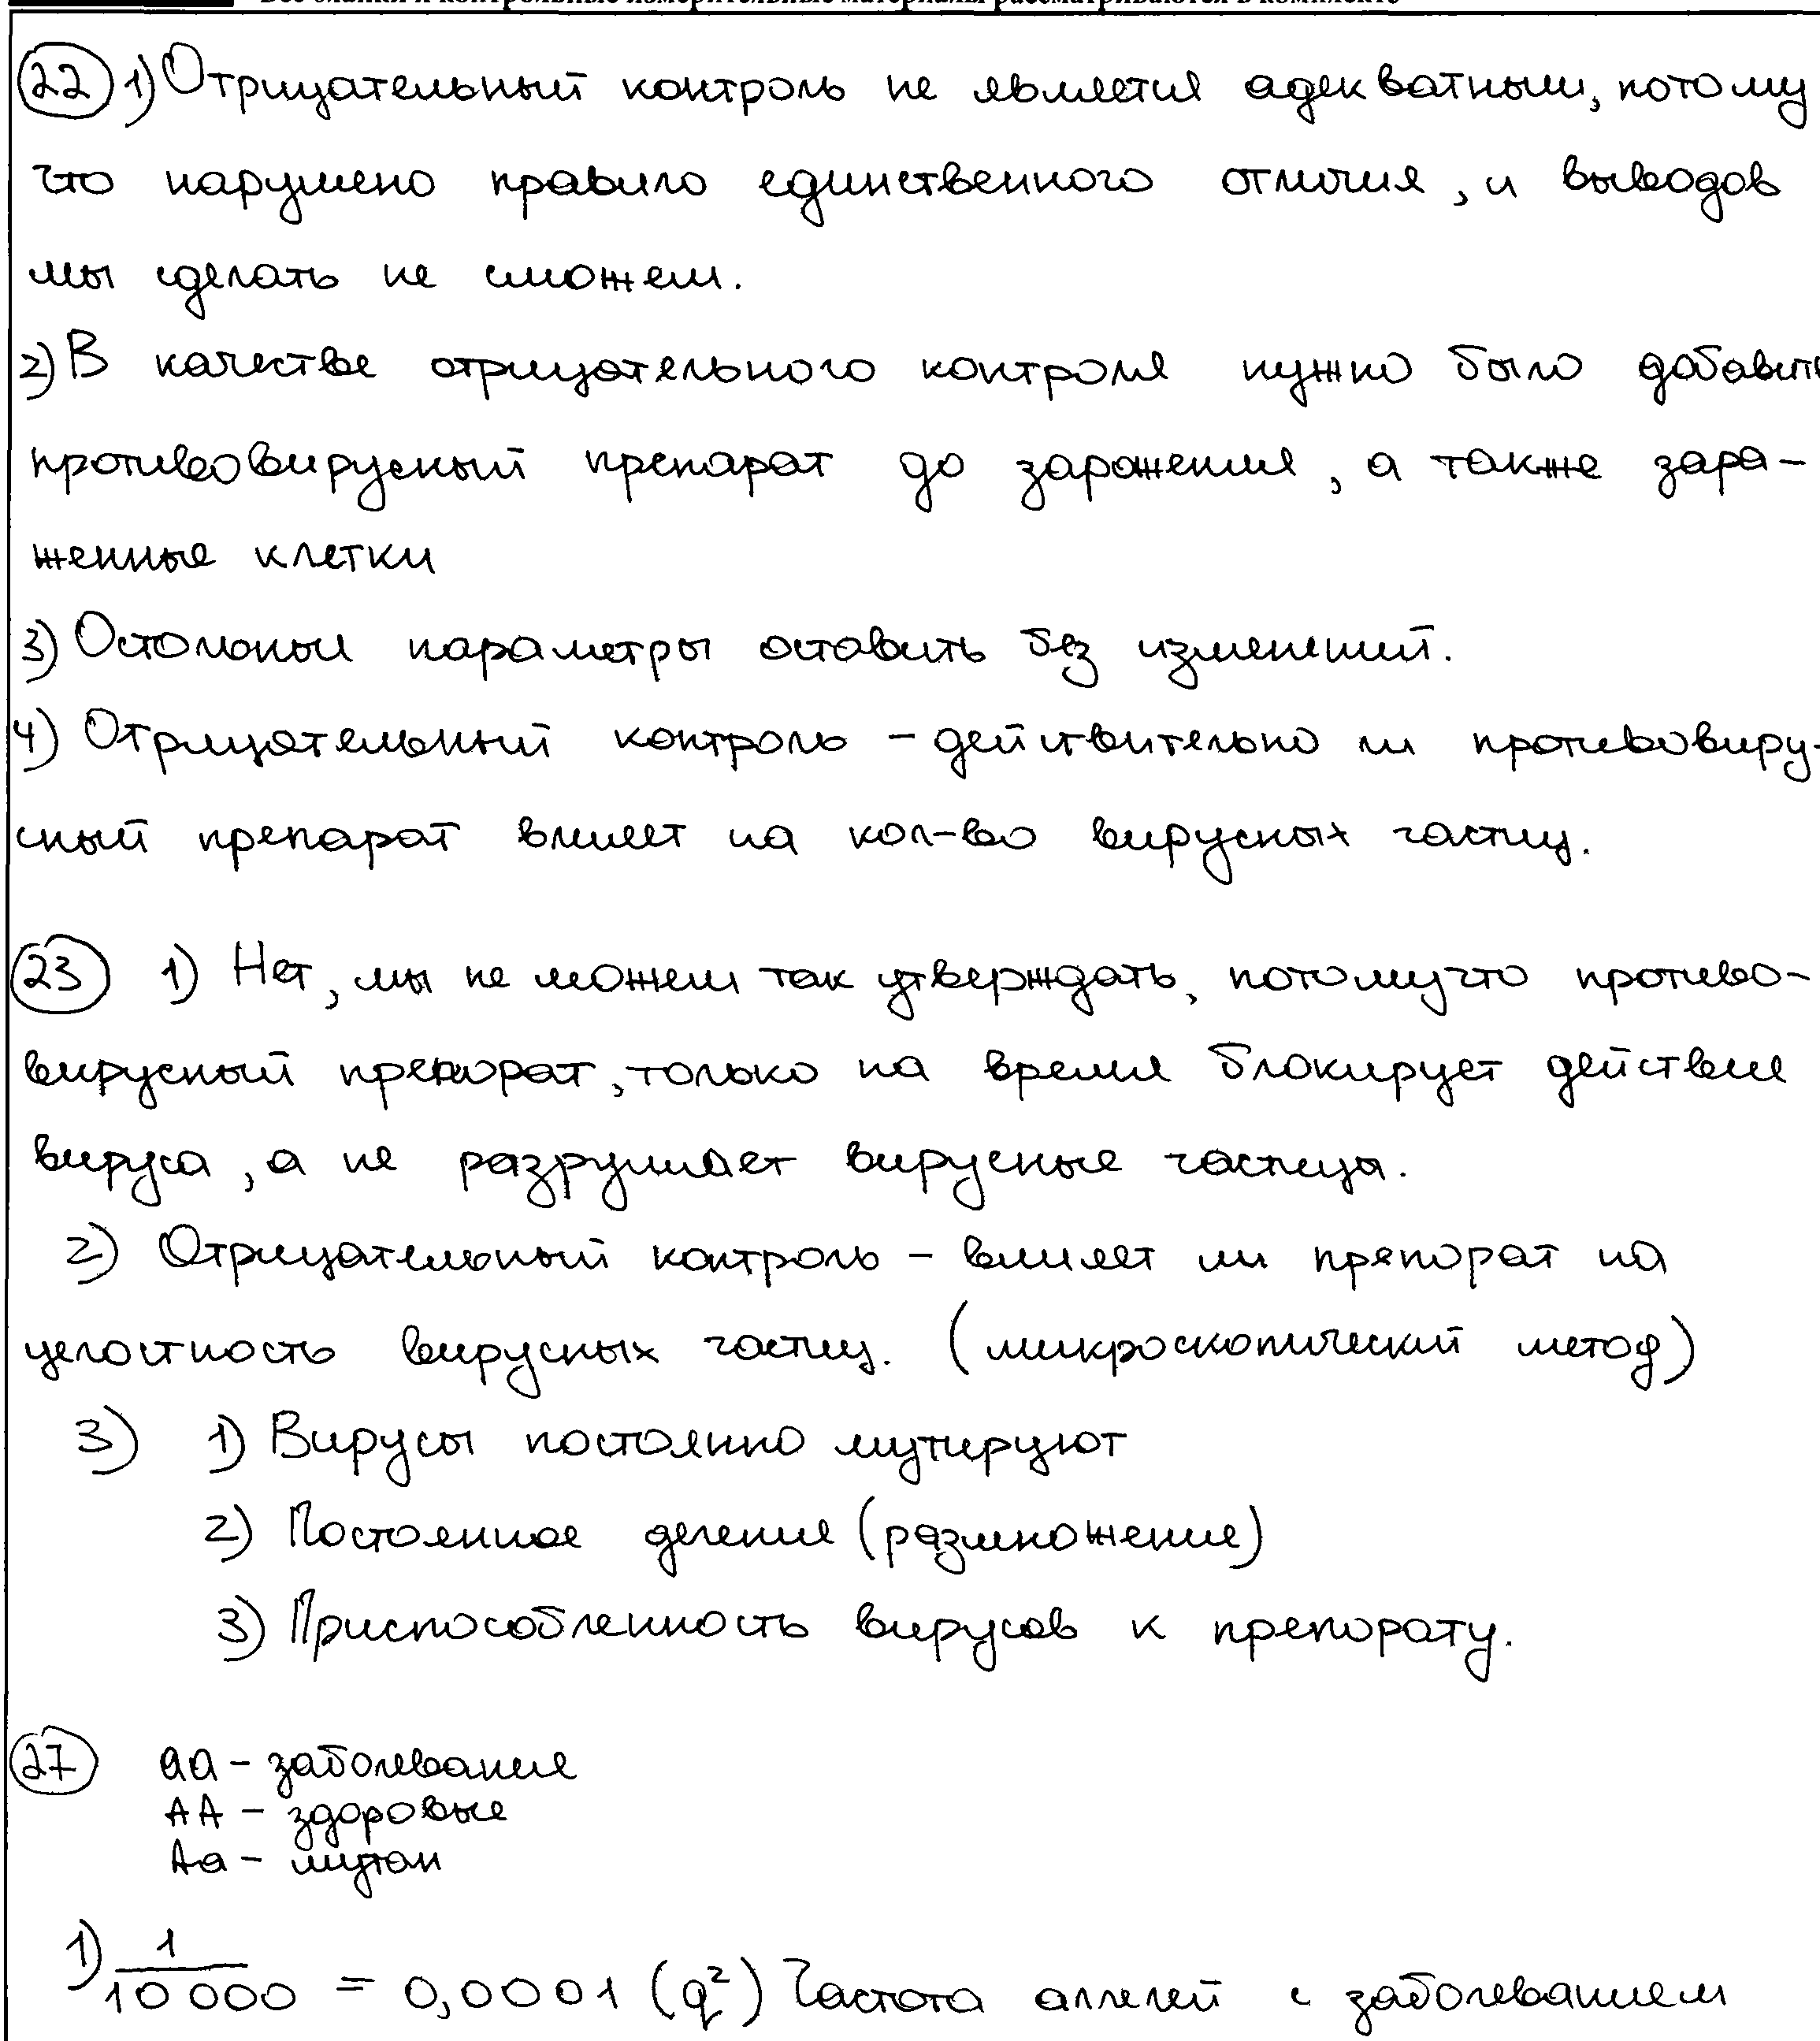 Все бланки и контрольные измерительные материалы рассматриваются в комплекте
22 1) Отрицательный контроль не является адекватным, потому
что нарушено правило единственного отличия, и выводов
мы сделать не сможем.
2) В качестве отрицательного контроля нужно было добавить
противовирусный препарат до заражения, а также зара-
женные клетки
3) Остальные параметры оставить без изменений.
4) Отрицательный контроль - действительно ли противовиру-
сный препарат влияет на кол-во вирусных частиц.
23 1) Нет, мы не можем так утверждать, потому что противо-
вирусный препарат, только на время блокирует действие
вируса, а не разрушает вирусные частицы.
2) Отрицательный контроль - влияет ли препорат на
целостность вирусных частиц. (микроскопический метод)
3) 1) Вирусы постоянно мутируют
2) Постоянное деление (размножение)
3) Приспособленность вирусов к препорату.
27 аа - заболевание
АА - здоровые
Аа - мутан
1) 1/10 000 = 0,0001 (q²) Частота аллелей с заболеванием